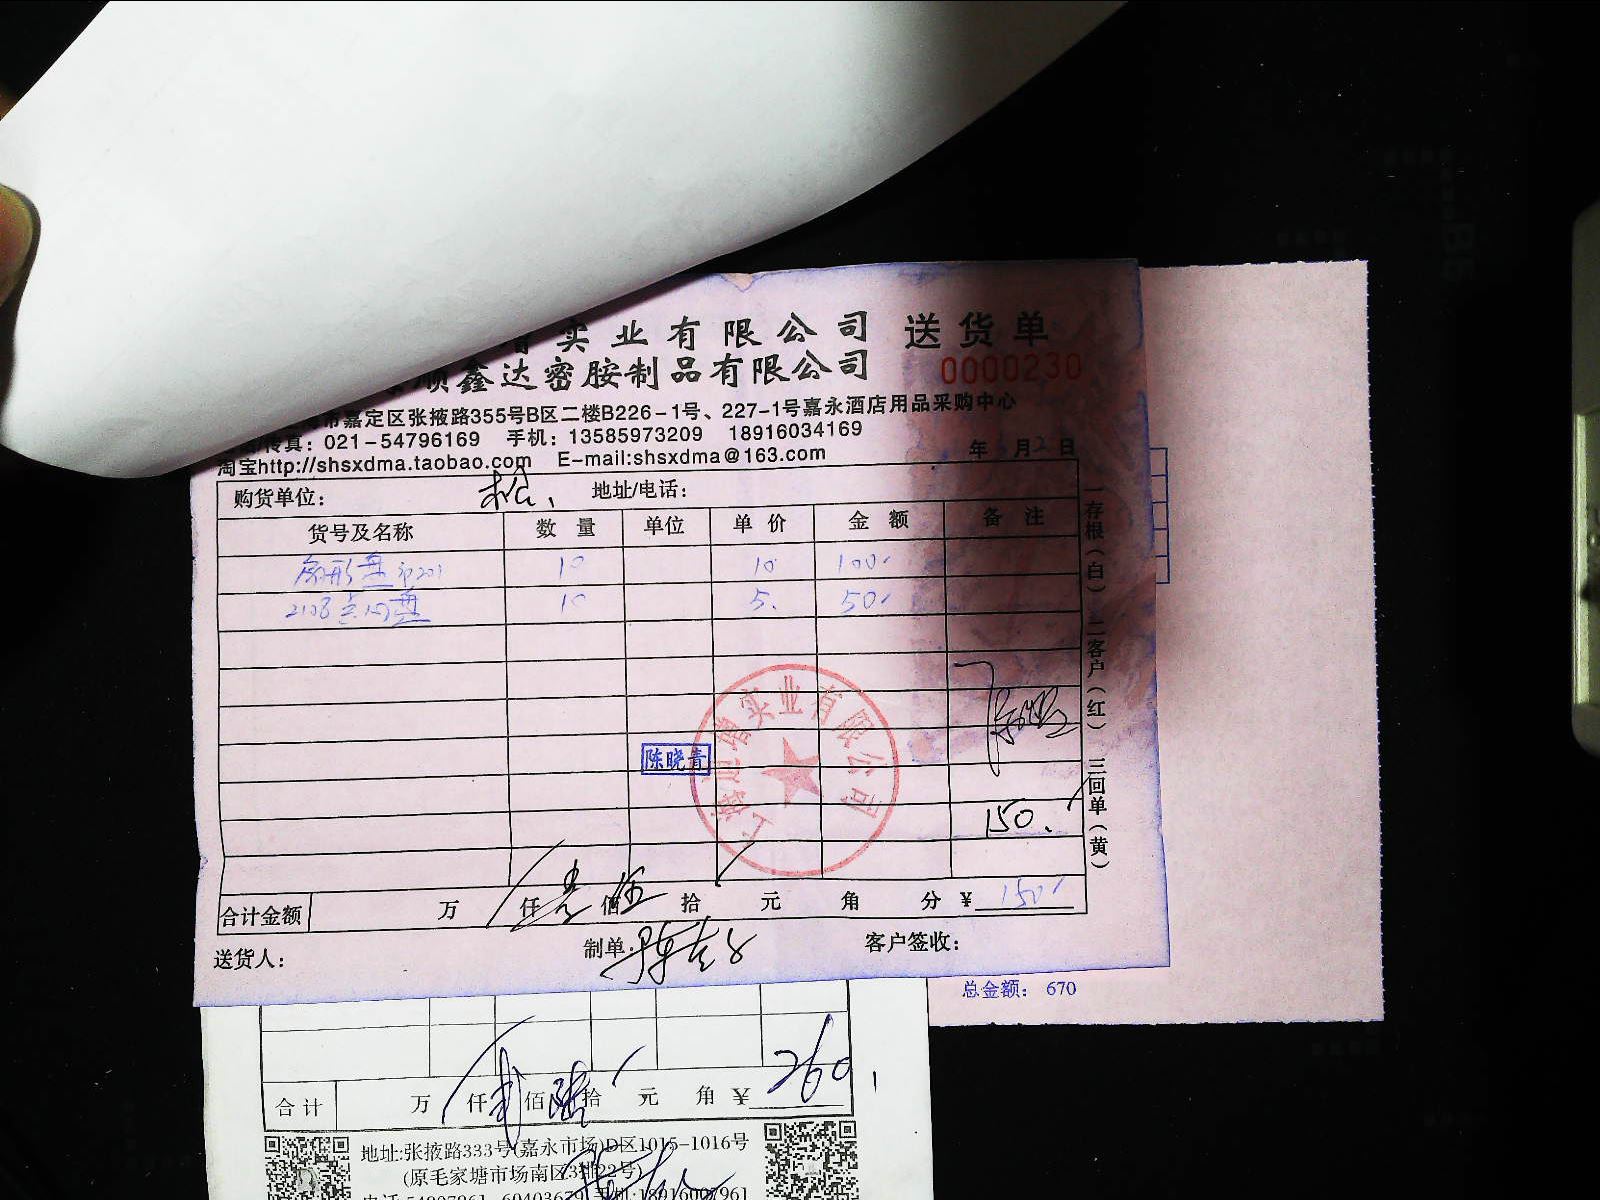 实业有限公司 送货单
顺鑫达密胺制品有限公司 0000230
市嘉定区张掖路355号B区二楼B226-1号、227-1号嘉永酒店用品采购中心
传真：021-54796169 手机：13585973209 18916034169
淘宝http://shsxdma.taobao.com E-mail:shsxdma@163.com 年 月2日
购货单位： 松、 地址/电话：
货号及名称 数量 单位 单价 金额 备注
扇形盘 201 10 10 100
2108 盘 10 5. 50
一存根（白）二客户（红）三回单（黄）
实业有限公司
陈晓青
150.
合计金额 万 仟壹佰伍拾 元 角 分 ¥ 150
送货人： 制单： 客户签收：
总金额： 670
合计 万 仟 佰陆拾 元 角 ¥ 260
地址:张掖路333号(嘉永市场)D区1015-1016号
(原毛家塘市场南区3排22号)
手机:18916007961